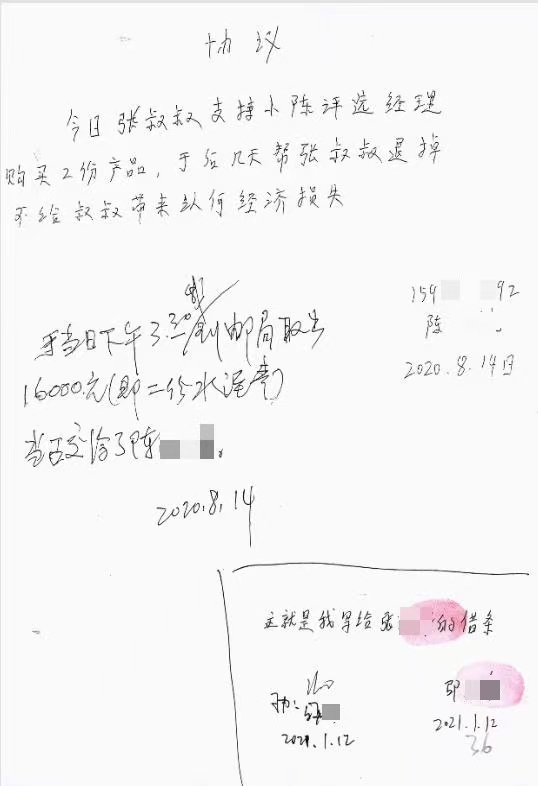 协议
今日张叔叔支持小陈评选经理
购买2份产品，于后几天帮张叔叔退掉
不给叔叔带来认何经济损失
159 92
陈
2020.8.14日
于当日下午3.30到邮局取出
16000元(即二份水漫费)
当面交给了陈
2020.8.14
这就是我写给张 的借条
2021.1.12
2021.1.12
36